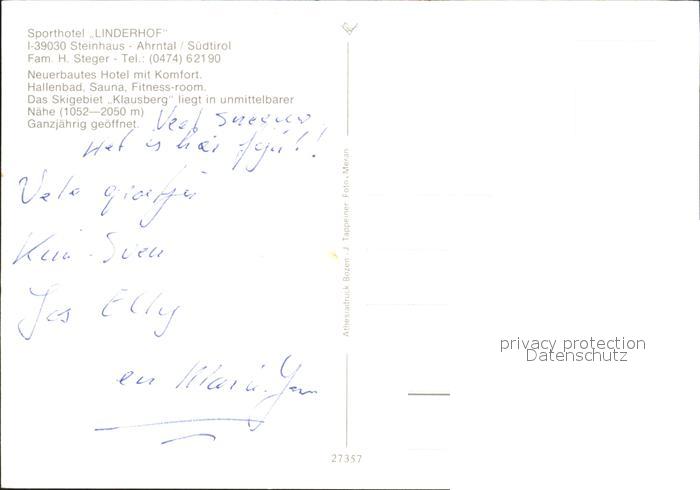 Sporthotel „LINDERHOF"
I-39030 Steinhaus - Ahrntal / Südtirol
Fam. H. Steger - Tel.: (0474) 62190
Neuerbautes Hotel mit Komfort.
Hallenbad, Sauna, Fitness-room.
Das Skigebiet „Klausberg" liegt in unmittelbarer
Nähe (1052—2050 m)
Ganzjährig geöffnet.
Veel sneeuw.
Het is hier fijn!!
Vele groetjes
Sven
Jos Elly
en
Athesiadruck Bozen - J. Tappeiner Foto, Meran
27357
privacy protection
Datenschutz